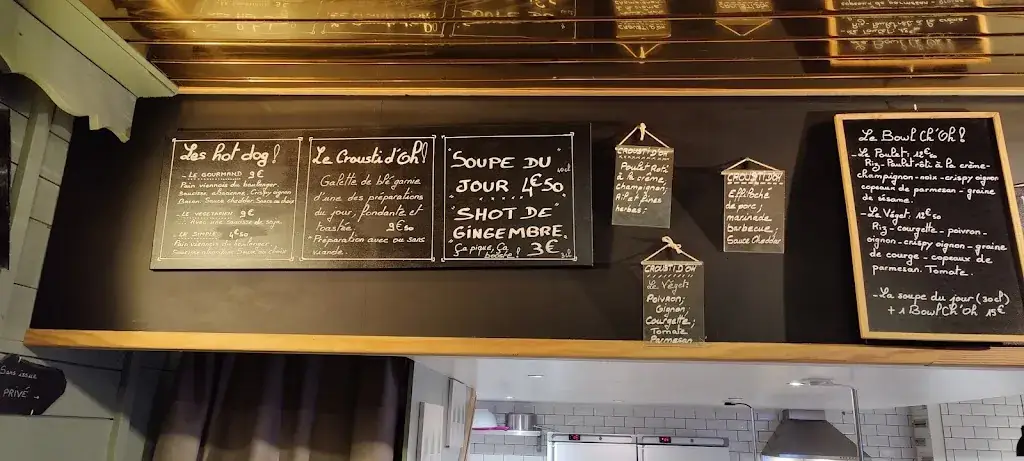 Les hot dog!
- LE GOURMAND 9€
Pain viennois du boulanger
Saucisse alsacienne. Crispy oignon
Bacon. Sauce cheddar. Sauce au choix
- LE VEGETARIEN 9€
Avec une saucisse de soja
- LE SIMPLE 4€50
Pain viennois du boulanger.
Le Crousti d'Oh!
Galette de blé garnie
d'une des préparations
du jour, fondante et
toastée. 9€50
*Préparation avec ou sans
viande.
"SOUPE DU
JOUR 4€50
"SHOT DE"
GINGEMBRE.
Ça pique, Ça
booste! 3€
CROUSTI D'OH
Poulet Roti
à la crème
champignon;
Ail et fines
herbes;
CROUSTI D'OH
Effiloché
de porc;
marinade
barbecue;
Sauce Cheddar
CROUSTI D'OH
Le Végét:
Poivron;
Oignon;
Courgette;
Tomate
Parmesan
Le Bowl Ch'Oh!
- Le Poulet: 12€50
Riz - Poulet roti à la crème-
champignon - noix - crispy oignon
copeaux de parmesan - graine
de sésame.
- Le Végét: 12€50
Riz - courgette - poivron -
oignon - crispy oignon - graine
de courge - copeaux de
parmesan. Tomate.
- La soupe du jour (30cl)
+ 1 Bowl Ch'Oh 15€
Sans issue
PRIVÉ